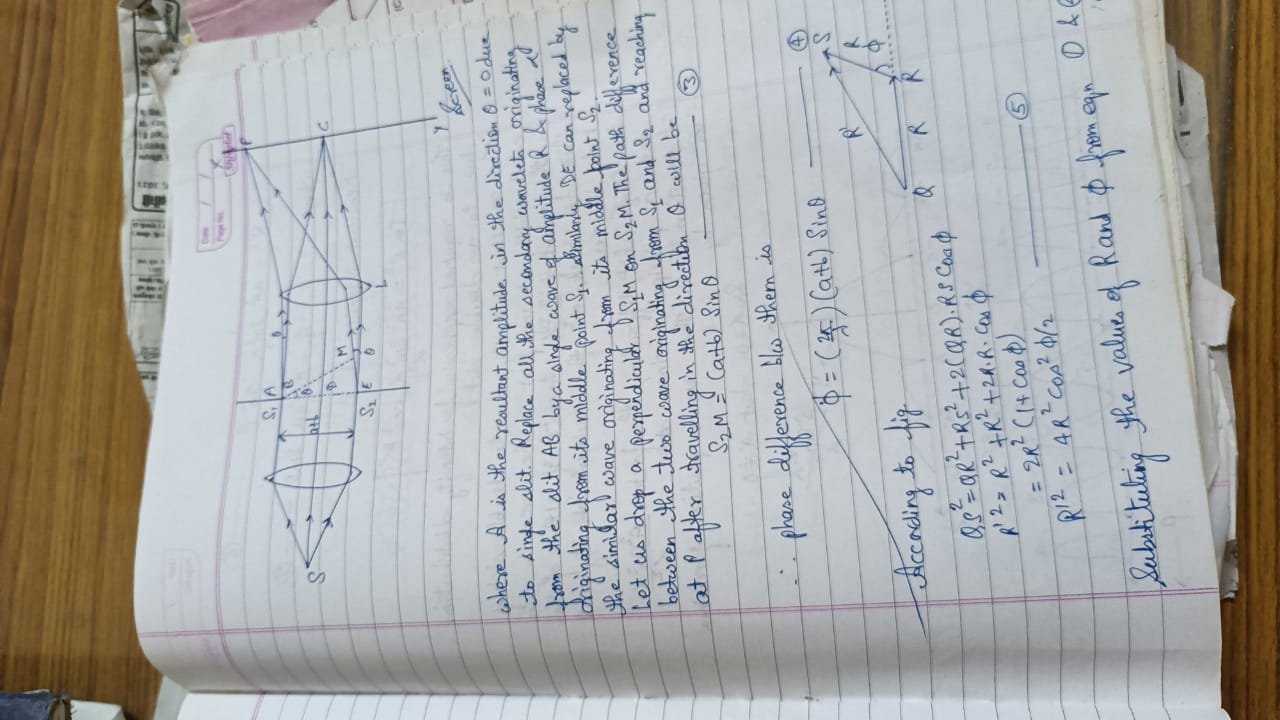 Date / /
Page No.
X
P
S
S₁ A
B
θ
D
E
S₂
a+b
M
θ
L
C
Y
Screen.
where A is the resultant amplitude in the direction θ = 0 due
to single slit. Replace all the secondary wavelets originating
from the slit AB by a single wave of amplitude R & phase
originating from its middle point S₁. Similarly DE can replaced by
the similar wave originating from its middle point S₂.
Let us drop a perpendicular S₁M on S₂M. The path difference
between the two wave originating from S₁ and S₂ and reaching
at P after travelling in the direction θ will be
S₂M = (a+b) Sinθ ——— ③
∴ phase difference b/w them is
ϕ = (2π/λ)(a+b) Sinθ ——— ④
According to fig
Q
R
R
R
R
S
ϕ
QS² = QR² + RS² + 2(QR).RS Cosϕ
R'² = R² + R² + 2R.R.cosϕ
= 2R² (1+cosϕ)
R'² = 4R² cos² ϕ/2 ——— ⑤
Substituting the values of R and ϕ from eqn ① &